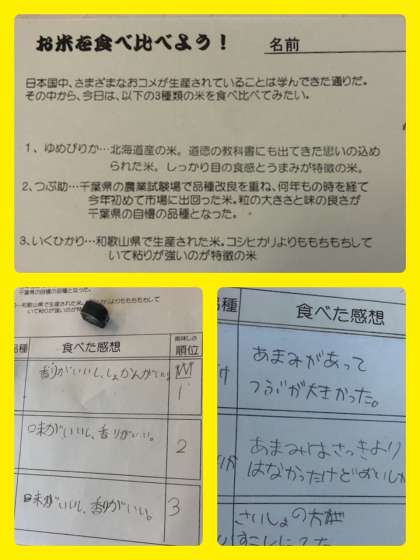 お米を食べ比べよう！ 名前
日本国中、さまざまなおコメが生産されていることは学んできた通りだ。
その中から、今日は、以下の3種類の米を食べ比べてみたい。
1、ゆめぴりか…北海道産の米。道徳の教科書にも出てきた思いの込め
られた米。しっかり目の食感とうまみが特徴の米。
2、つぶ助…千葉県の農業試験場で品種改良を重ね、何年もの時を経て
今年初めて市場に出回った米。粒の大きさと味の良さが
千葉県の自慢の品種となった。
3、いくひかり…和歌山県で生産された米。コシヒカリよりももちもちして
いて粘りが強いのが特徴の米
千葉県の自慢の品種となった。
和歌山県で生産された米。コシヒカリよりももちもちして
いて粘りが強いのが特
品種 食べた感想 美味しさ
順位
香りがいいし、しょっかんがいい
1
味がいいし、香りがいい。
2
味がいいし、香りがいい。
3
品種 食べた感想
あまみがあって
つぶが大きかった。
あまみはさっきより
はなかったけどおいしか
さいしょの方